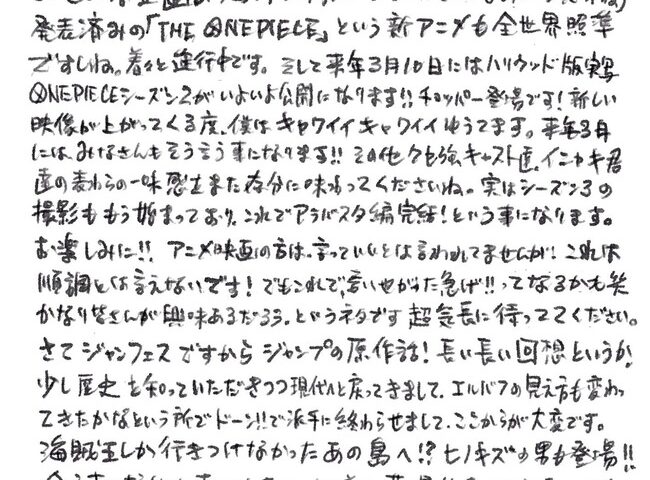 発表済みの「THE ONE PIECE」という新アニメも全世界照準
ですしね。着々と進行中です。そして来年3月10日にはハリウッド版実写
ONE PIECEシーズン2がいよいよ公開になります!! チョッパー登場です! 新しい
映像が上がってくる度、僕はキャワイイキャワイイゆうてます。来年3月
には、みなさんもそう言う事になります!! その他クセ強キャスト達、イニャキ君
達の麦わらの一味感もまた存分に味わってくださいね。実はシーズン3の
撮影ももう始まっており、これでアラバスタ編完結! という事になります。
お楽しみに!! アニメ映画の方は、言っていいとは言われてませんが! これは
順調とは言えないです! でもこれで、言いやがった急げ!! ってなるかも笑
かなり皆さんが興味あるだろう、というネタです 超気長に待っててください。
さてジャンフェスですからジャンプの原作話! 長い長い回想というか、
少し歴史を知っていただきつつ現代へと戻ってきまして、エルバフの見え方も変わっ
てきたかなという所でドーン!! で派手に終わらせまして、ここからが大変です。
海賊王しか行きつけなかったあの島へ!? ヒノキズの男も登場!!